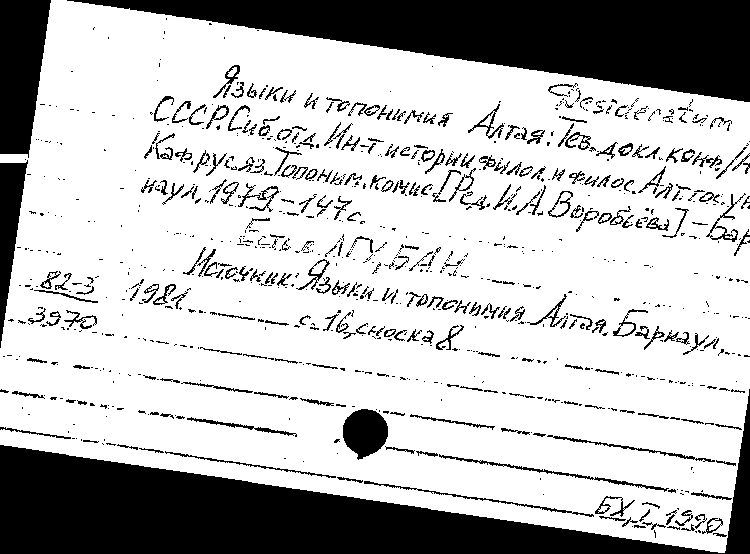 Desideratum
Языки и топонимия Алтая: Тез. докл. конф. / А
СССР. Сиб. отд. Ин-т истории, филол. и филос. Алт. гос. ун
Каф. рус. яз. Топоним. комис. [Ред. И.А. Воробьёва]. - Бар
наул, 1979 - 147 с.
Есть в ЛГУ, БАН
Источник: Языки и топонимия Алтая. Барнаул,
82-3 1981 с. 16, сноска 8
3970
БХ, I, 1990